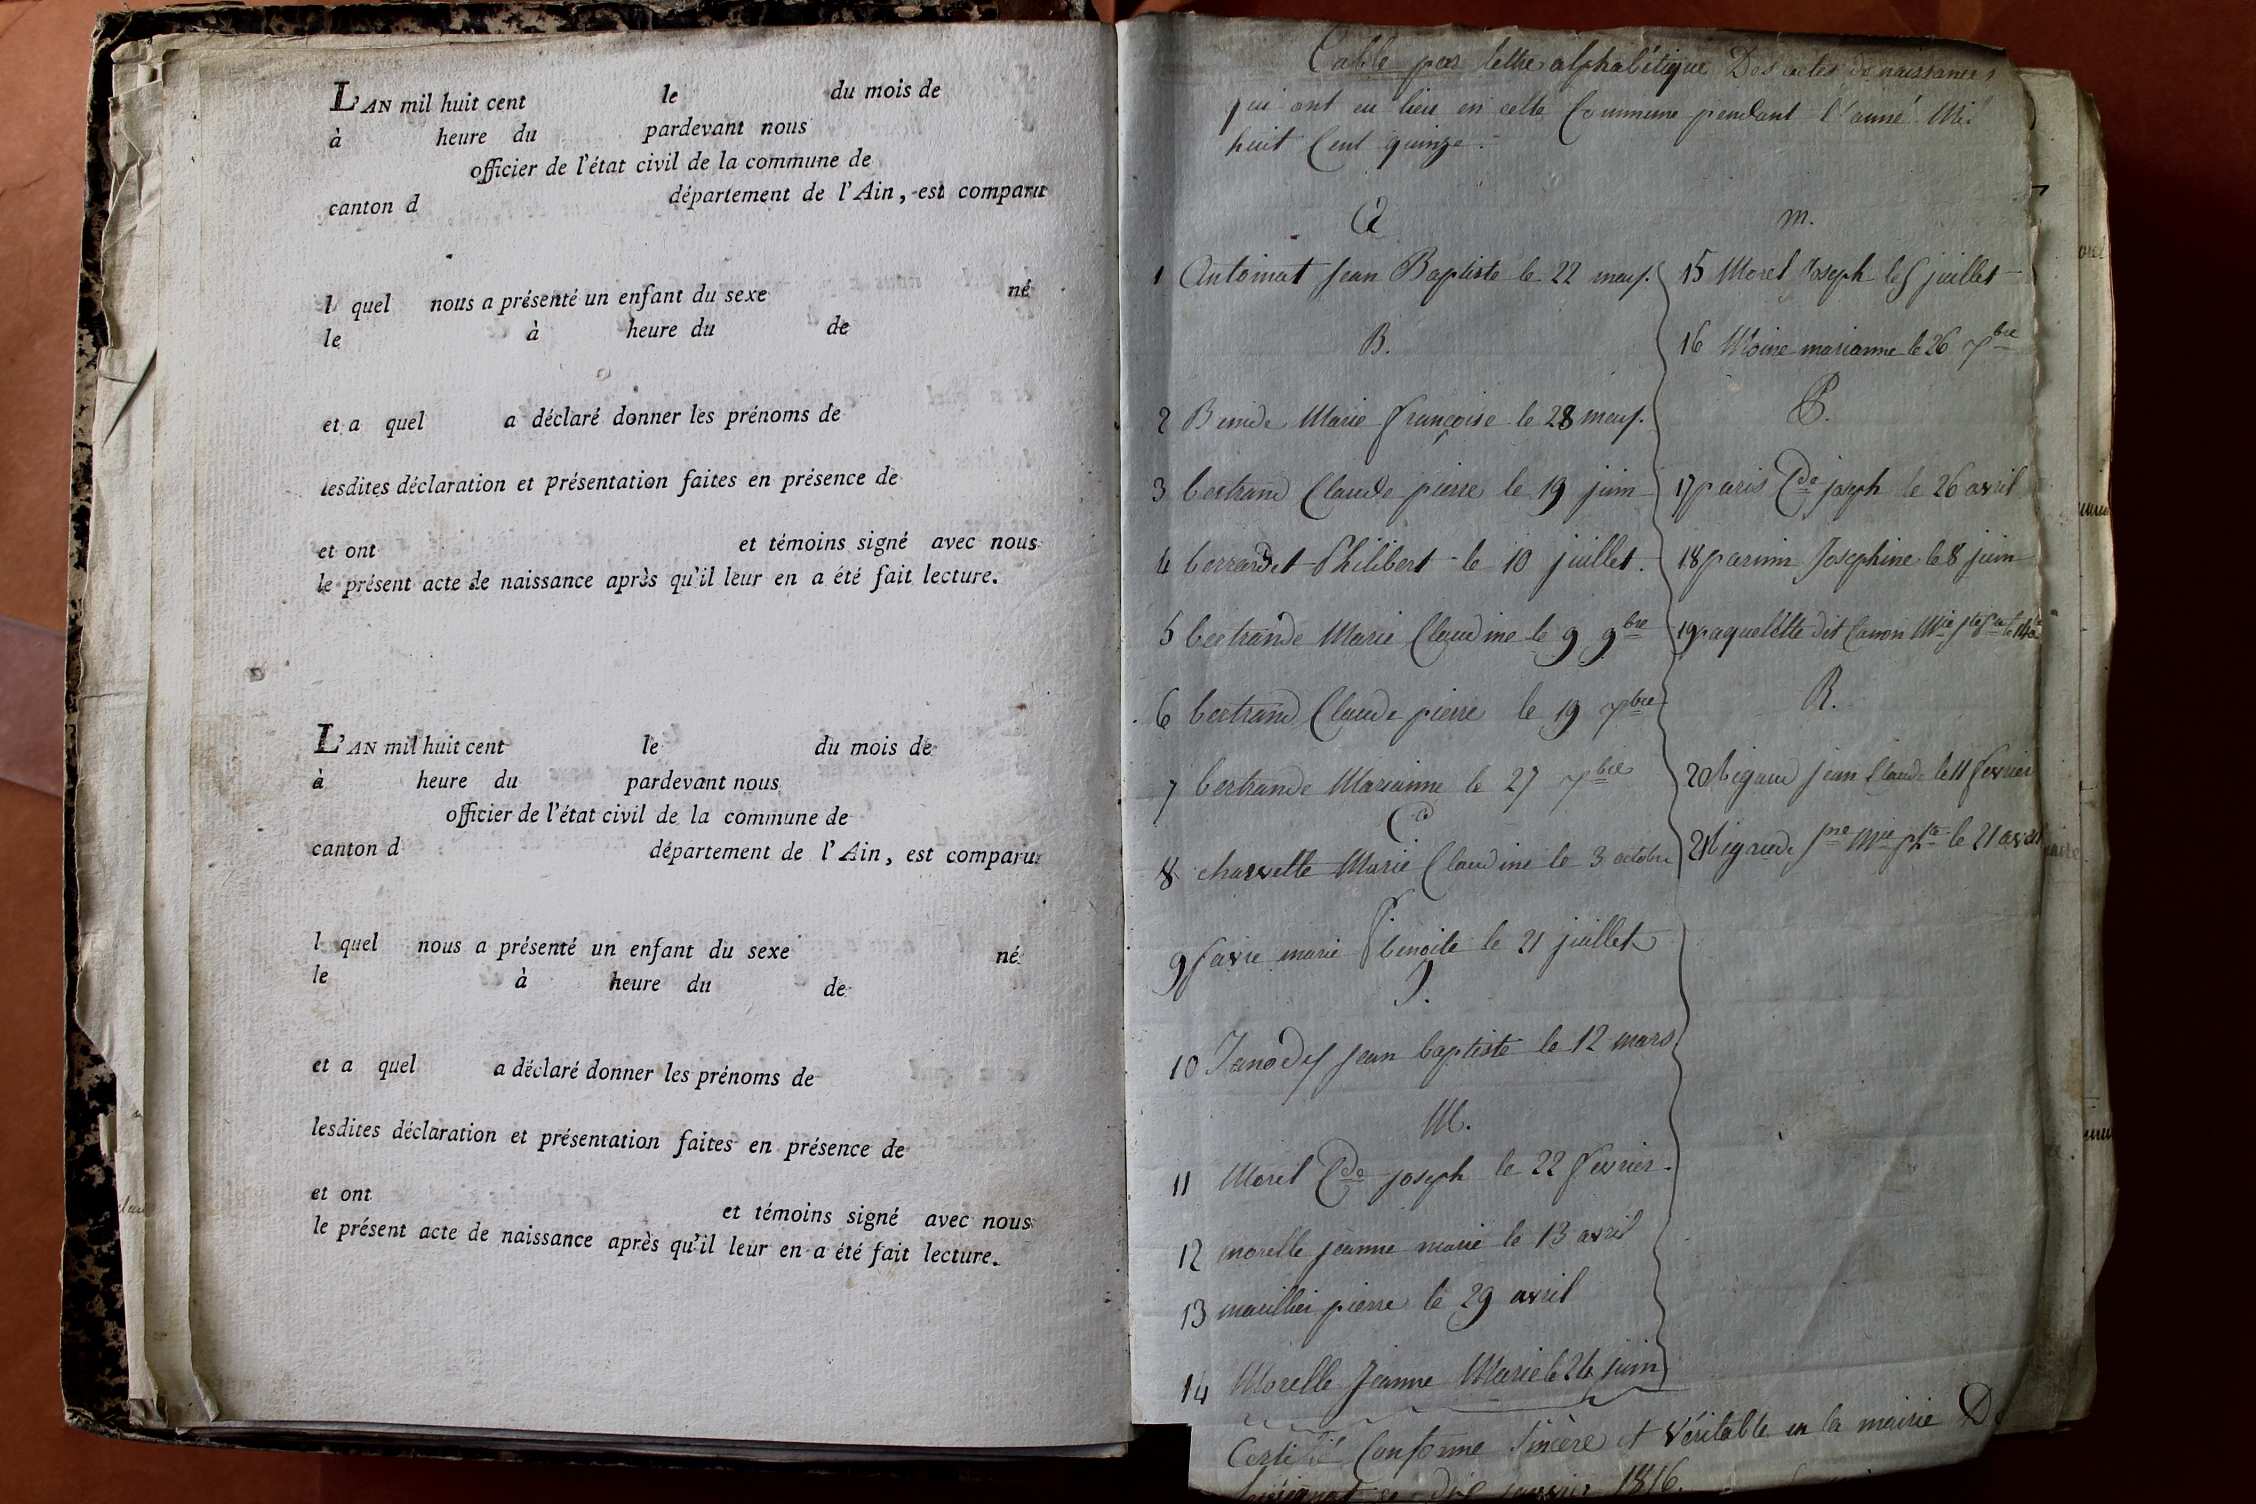 L'AN mil huit cent le du mois de
à heure du pardevant nous
officier de l'état civil de la commune de
canton d département de l'Ain, est comparu
l quel nous a présenté un enfant du sexe né
le à heure du de
et a quel a déclaré donner les prénoms de
lesdites déclaration et présentation faites en présence de
et ont et témoins signé avec nous
le présent acte de naissance après qu'il leur en a été fait lecture.
L'AN mil huit cent le du mois de
à heure du pardevant nous
officier de l'état civil de la commune de
canton d département de l'Ain, est comparu
l quel nous a présenté un enfant du sexe né
le à heure du de
et a quel a déclaré donner les prénoms de
lesdites déclaration et présentation faites en présence de
et ont et témoins signé avec nous
le présent acte de naissance après qu'il leur en a été fait lecture.
Table par lettre alphabétique Des actes de naissances
qui ont eu lieu en cette Commune pendant l'anné Mil
huit Cent quinze
A
1 Antoinat Jean Baptiste le 22
B.
2 Marie françoise le 28
3 bertrand Claude pierre le 19 juin
4 berrardet Philibert le 10 juillet.
5 bertrande Marie Claudine le 9 9bre
6 bertrand Claude pierre le 19 7bre
7 bertrande Marianne le 27 7bre
C
8 charvette Marie Claudine le 3 octobre
F
9 favre marie benoite le 21 juillet
J.
10 Janody Jean baptiste le 12 mars
M.
11 Morel Cde joseph le 22 fevrier.
12 morelle jeanne marie le 13 avril
13 pierre le 29 avril
14 Morelle Jeanne Marie le 24 juin
m.
15 Morel Joseph le 5 juillet
16 Moine marianne le 26 7bre
P.
17 paris Cde joseph le 26 avril
18 Josephine le 8 juin
19 paquelette dit Canon Mie
R.
20 Rigaud jean Claude le 11 fevrier
21 Rigaude Mie le 21 avril
Certifié Conforme Sincère et Véritable en la mairie De
ce dix janvier 1816.